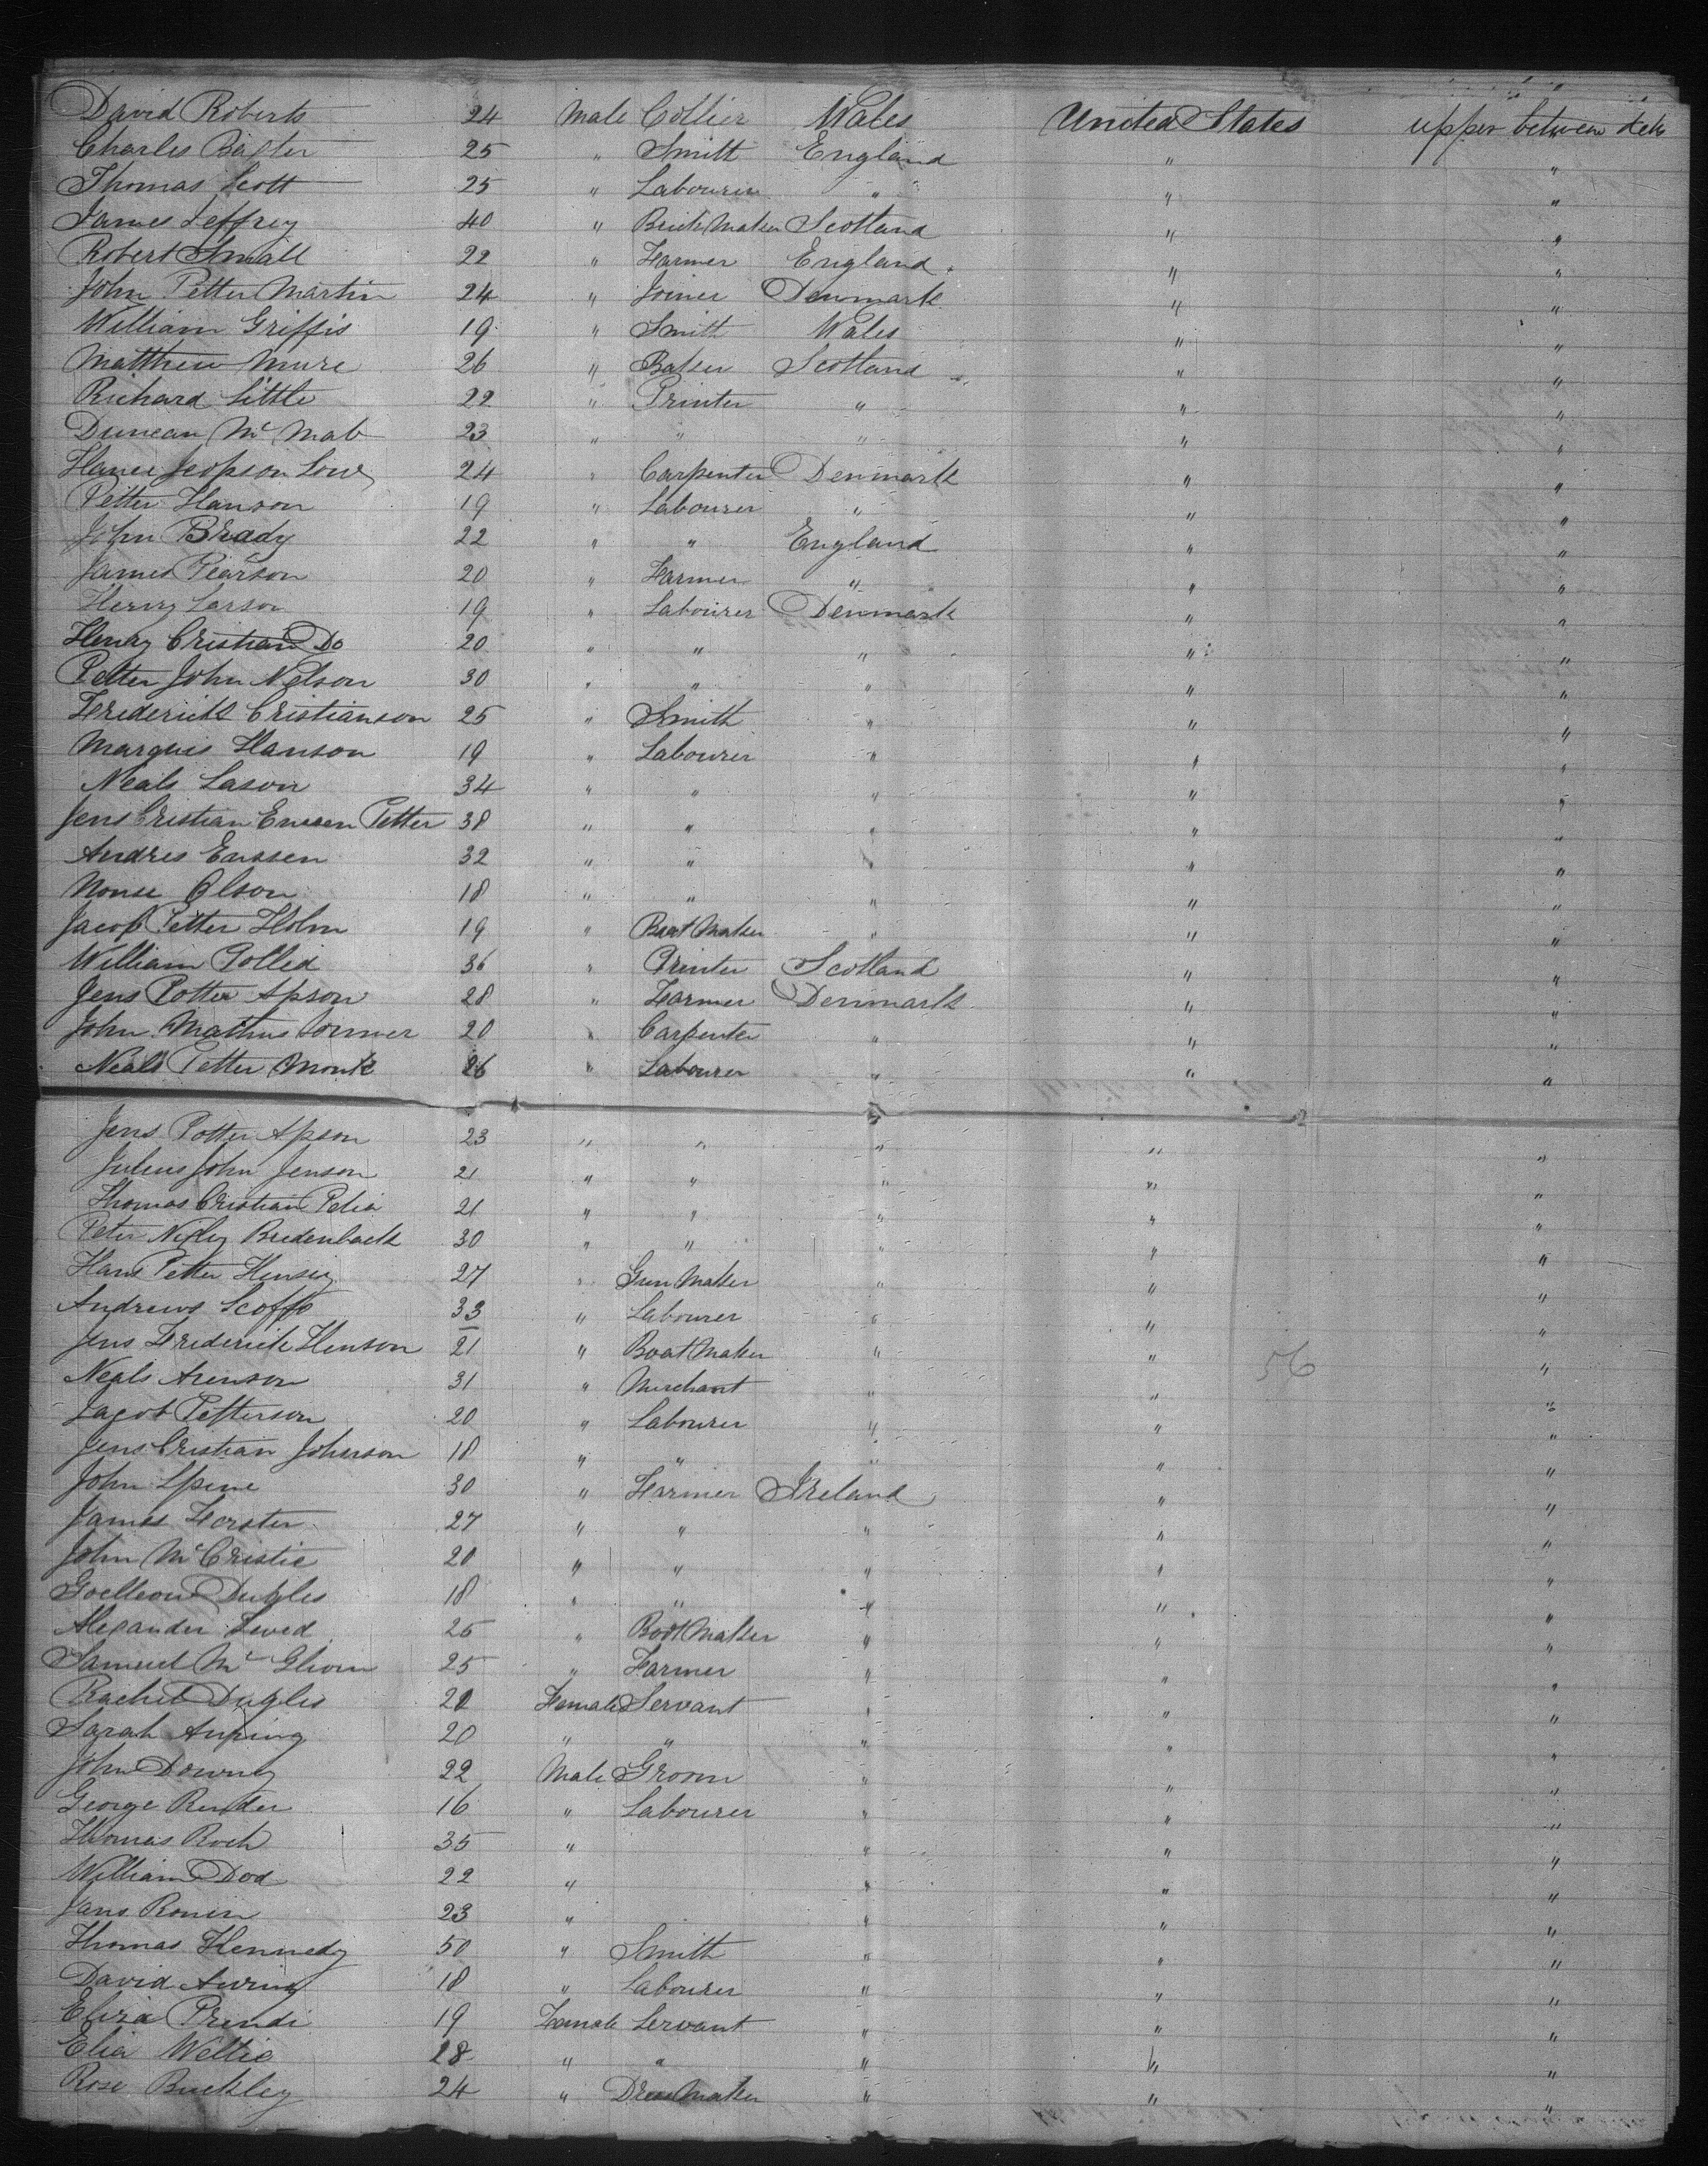 David Roberts 24 Male Collier Wales United States upper between deks
Charles Baxter 25 " Smith England " "
Thomas Scott 25 " Labourer " " "
James Jeffrey 40 " Brick Maker Scotland " "
Robert Small 22 " Farmer England " "
John Petter Martin 24 " Joiner Denmark " "
William Griffis 19 " Smith Wales " "
Matthew Mure 26 " Baker Scotland " "
Richard Little 22 " Printer " " "
Duncan Mc Mab 23 " " " " "
Jeopson 24 " Carpenter Denmark " "
Petter Hanson 19 " Labourer " " "
John Brady 22 " " England " "
James Pearson 20 " Farmer " " "
Henry Larson 19 " Labourer Denmark " "
Henry Cristian Do 20 " " " " "
Petter John Nelson 30 " " " " "
Frederick Cristianson 25 " Smith " " "
Marquis Hanson 19 " Labourer " " "
Neals Lason 34 " " " " "
Jens Cristian Petter 38 " " " " "
Andres Enssen 32 " " " " "
Olson 18 " " " " "
Jacob Petter Holm 19 " Boot Maker " " "
William Pollid 36 " Printer Scotland " "
Jens Potter Apson 28 " Farmer Denmark " "
John Mathus 20 " Carpenter " " "
Neals Petter Monk 26 " Labourer " " "
Jens Potter Apson 23 " " " " "
Julius John Jenson 21 " " " " "
Thomas Cristian Petia 21 " " " " "
Peter Bredenback 30 " " " " "
Hans Petter 27 " Gun Maker " " "
Andrews Scoffs 33 " Labourer " " "
Jens Frederick Henson 21 " Boot Maker " " "
56
Neals Arenson 31 " Merchant " " "
Jacob Petterson 20 " Labourer " " "
Jens Cristian Johnson 18 " " " " "
John Spine 30 " Farmer Ireland " "
James Forster 27 " " " " "
John McCristie 20 " " " " "
Dugles 18 " " " " "
Alexander 25 " Boot Maker " " "
Samuel Mc 25 " Farmer " " "
Rachel Dugles 20 Female Servant " " "
Sarah 20 " " " " "
John Downey 22 Male Groom " " "
George 16 " Labourer " " "
Thomas Roch 35 " " " "
William Dod 22 " " " "
Jans Ronin 23 " " " "
Thomas Kennedy 50 " Smith " " "
David 18 " Labourer " " "
Eliza Prendi 19 Female Servant " " "
Elia Wettie 28 " " " " "
Rose Buckley 24 " Dress Maker " " "